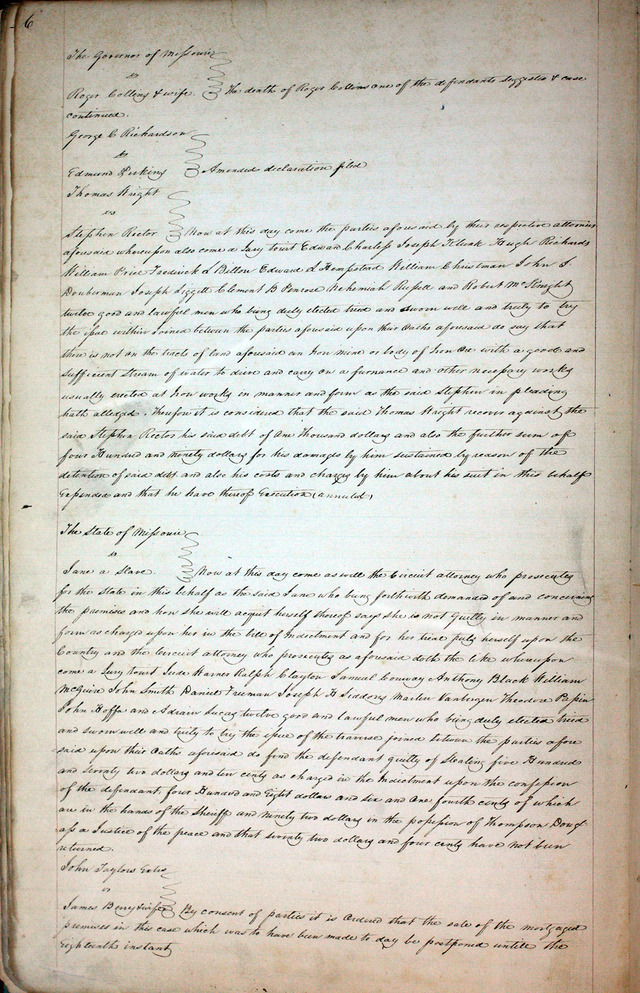 6
The Governor of Missouri
vs
Roger Collins & wife The death of Roger Collins one of the defendants suggested & case
continued.
George C Richardson
vs
Edmund Perkins Amended declaration filed
Thomas Wright
vs
Stephen Rector Now at this day come the parties aforesaid by their respective attornies
aforesaid whereupon also come a Jury towit Edward Charless Joseph Hugh Richards
William Price Frederick L Billon Edward L Hempstead William Christman John S
Douberman Joseph Liggett Clement B Penrose Nehemiah Russell and Robert McKnight
twelve good and lawfull men who being duly elected tried and sworn well and truly to try
the issue within Joined between the parties aforesaid upon their Oaths aforesaid do say that
there is not on the tracts of land aforesaid an Iron mine or body of Iron Ore with a good and
sufficient Stream of water to drive and carry on a furnance and other necessary works
usually erected at Iron works in manner and form as the said Stephen in pleading
hath alledged. Therefore it is considered that the said Thomas Wright recover against the
said Stephen Rector his said debt of One Thousand dollars and also the further sum of
four Hundred and ninety dollars for his damages by him sustained by reason of the
detention of said debt and also his costs and charges by him about his suit in this behalf
Expended and that he have thereof Execution (annuled)
The State of Missouri
vs
Jane a Slave Now at this day come as well the Circuit attorney who prosecutes
for the State in this behalf as the said Jane who being forthwith demanded of and concerning
the premises and how she will acquit herself thereof says she is not Guilty in manner and
form as charged upon her in the bill of Indictment and for her trial puts herself upon the
Country and the Circuit attorney who prosecutes as aforesaid doth the like whereupon
come a Jury towit Jude Warner Ralph Clayton Samuel Conway Anthony Black William
McGuire John Smith Daniel Freeman Joseph H Siddons Martin Vanbergen Theodore Papin
John Hoffe and Adrain Lucas twelve good and lawfull men who being duly elected tried
and sworn well and truly to try the issue of the traverse joined between the parties afore
said upon their Oaths aforesaid do find the defendant guilty of Stealing five Hundred
and seventy two dollars and ten cents as charged in the Indictment upon the confession
of the defendant, four Hundred and Eight dollars and six and One fourth cents of which
are in the hands of the Sheriff and ninety two dollars in the possession of Thompson Dougl
ass a Justice of the peace and that seventy two dollars and four cents have not been
returned.
John Taylors
vs
James Berry & wife By consent of parties it is Ordered that the sale of the mortgaged
premises in this case which was to have been made to day be postponed untill the
eighteenth instant